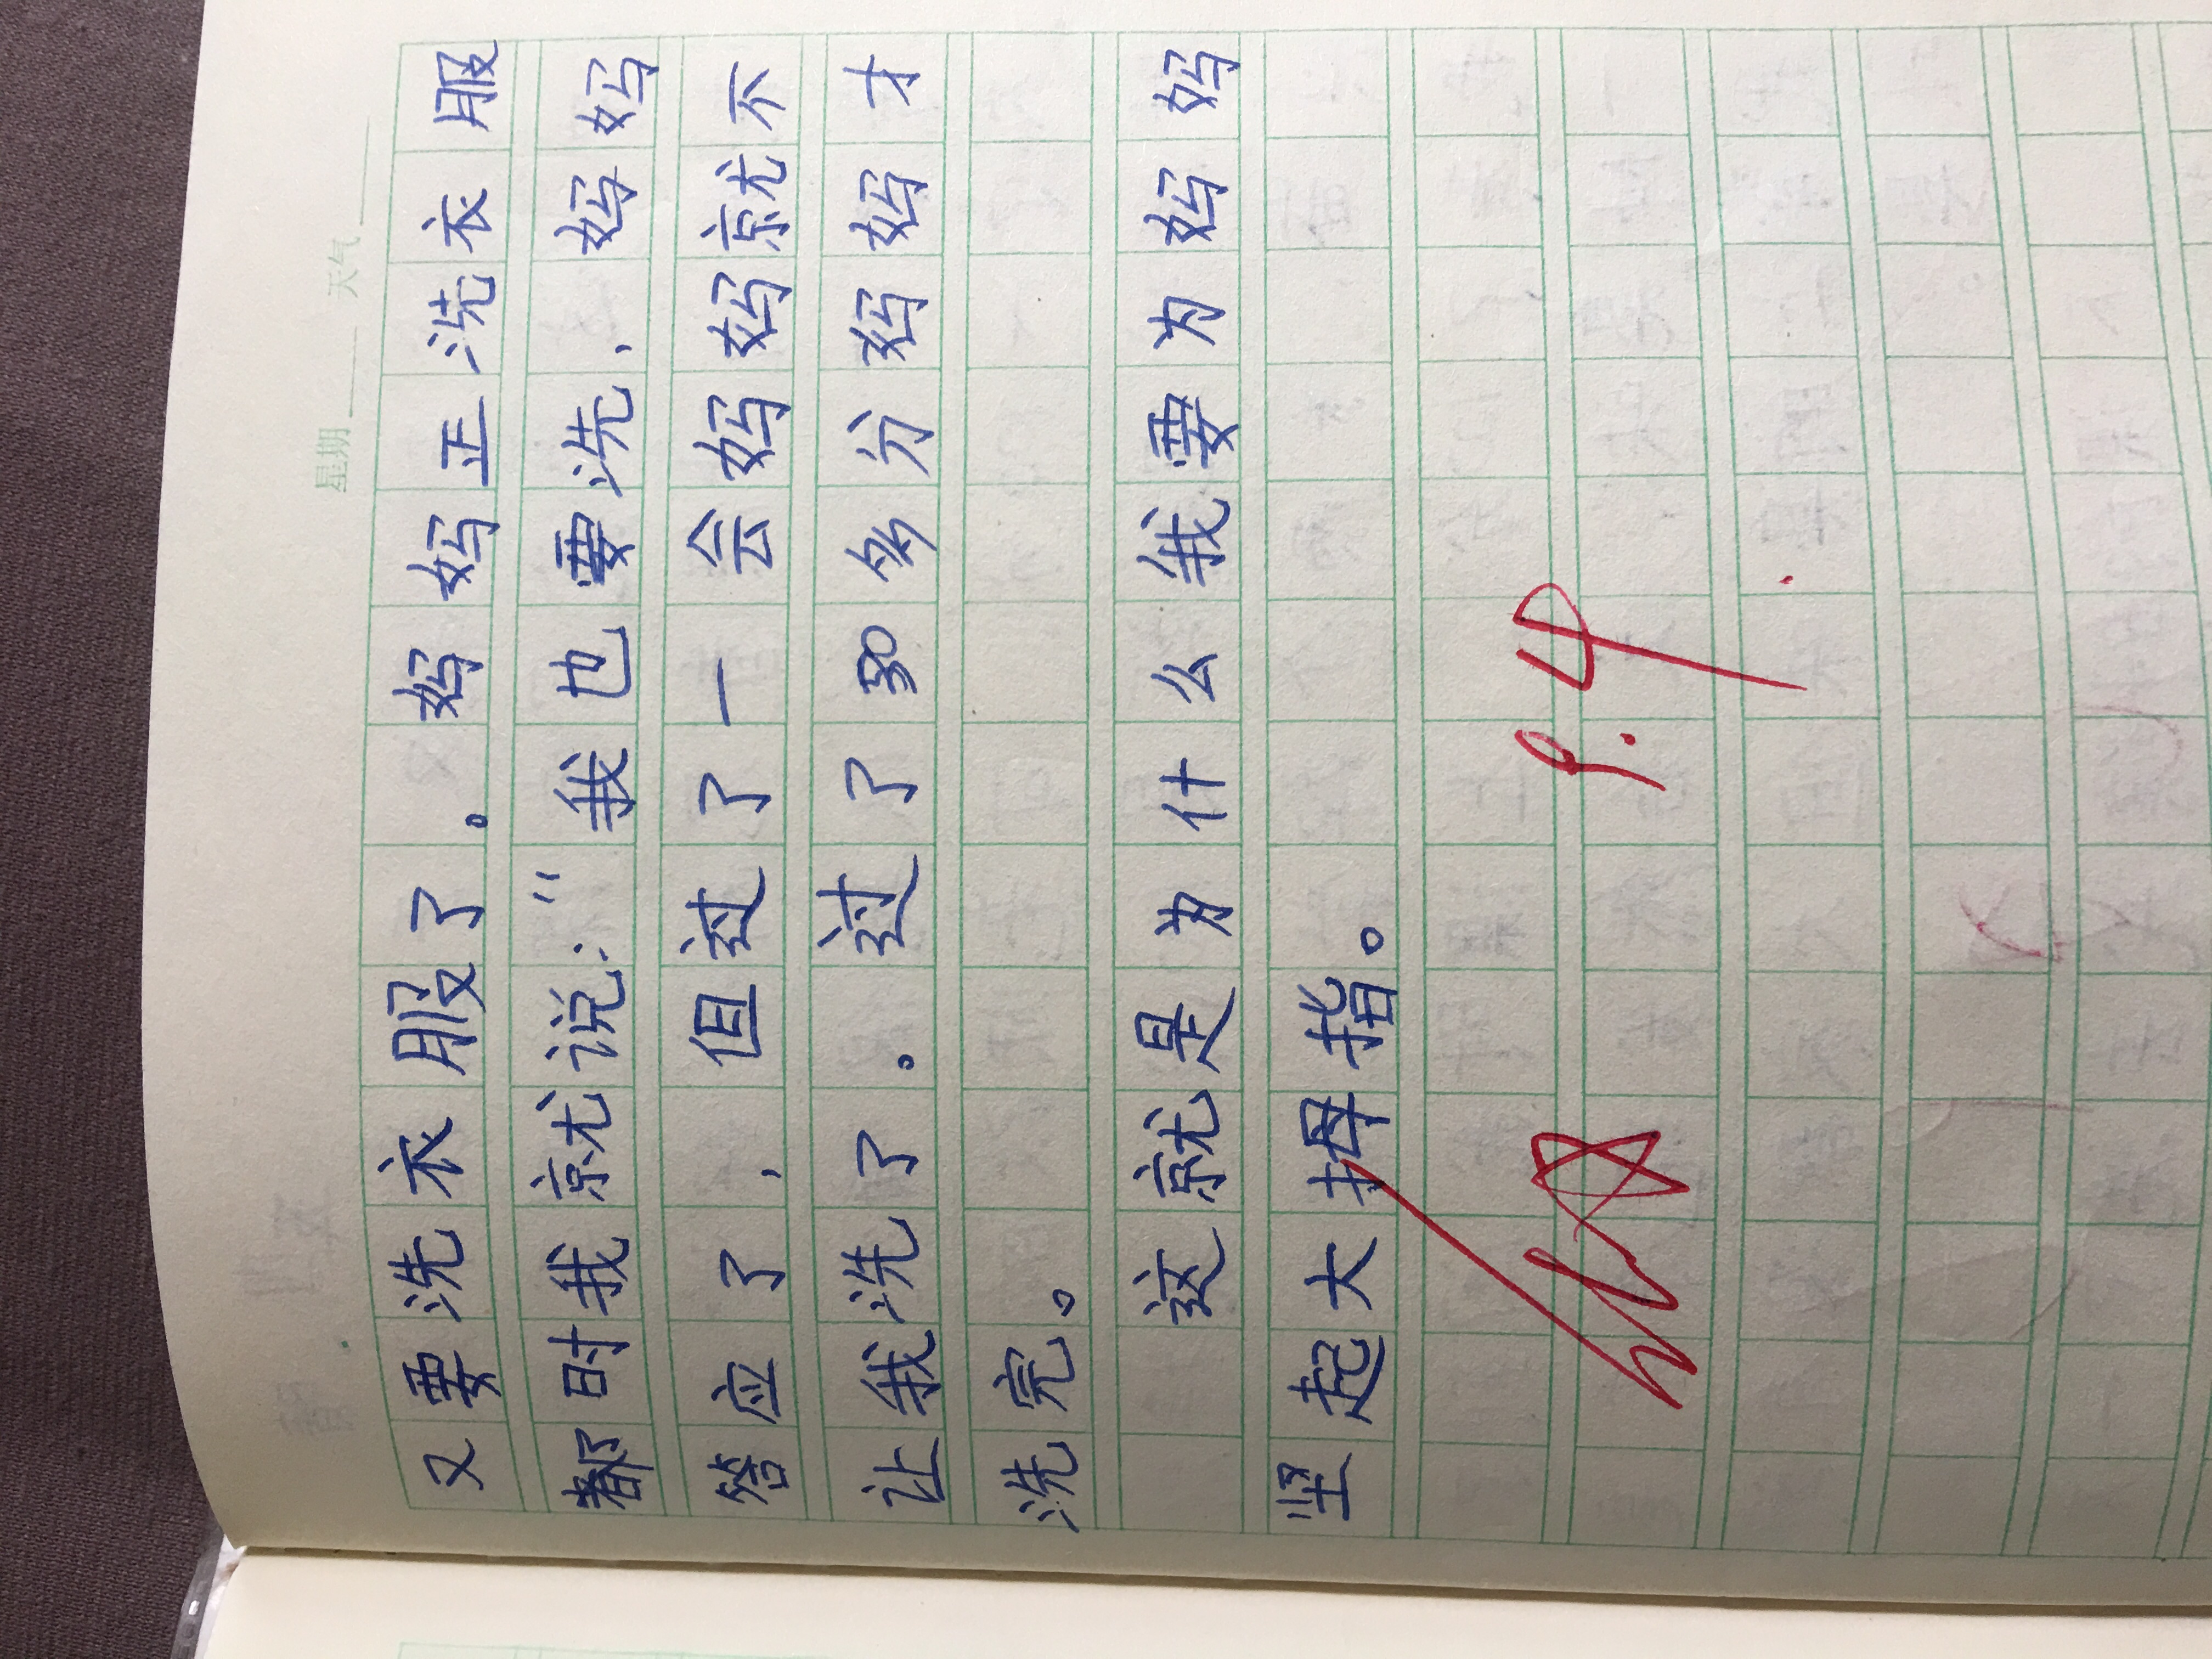 星期 天气
又要洗衣服了。妈妈正洗衣服
都时我就说:“我也要洗,妈妈
答应了,但过了一会妈妈就不
让我洗了。过了30多分妈妈才
洗完。
这就是为什么我要为妈妈
坚起大拇指。
9.4